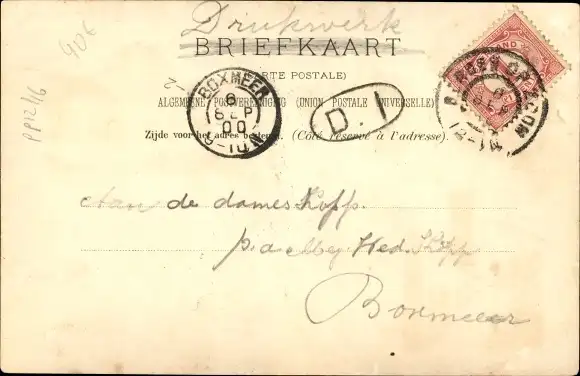 Drukwerk
40€
BRIEFKAART
(CARTE POSTALE)
ALGEMEENE POSTVEREENIGING (UNION POSTALE UNIVERSELLE)
Zijde voor het adres bestemd. (Côté réservé à l'adresse).
BOXMEER
6
SEP
00
D.I
PP12/16
Aan de dames Kopp.
p.a. Hed. Kopp
Boxmeer